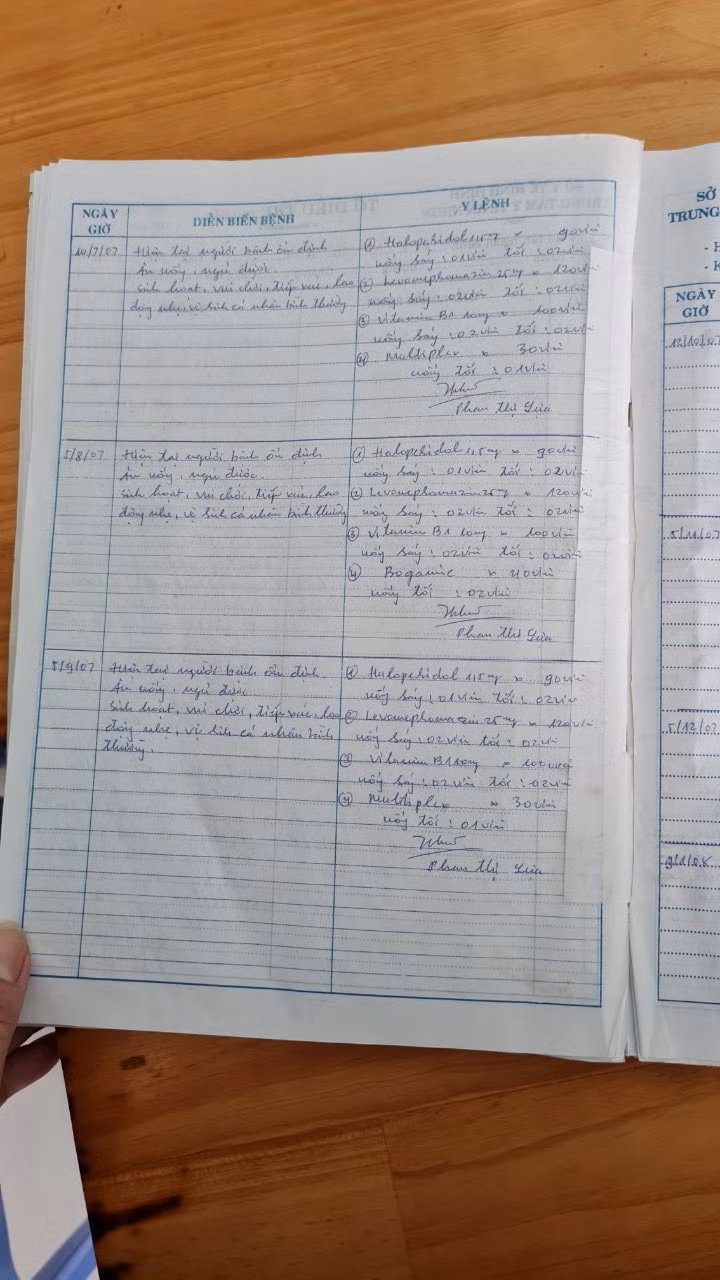 NGÀY GIỜ
DIỄN BIẾN BỆNH
Y LỆNH
10/7/07
Hiện tại người bệnh ổn định
Ăn uống, ngủ được.
Sinh hoạt, vui chơi, tiếp xúc, lao
động nhẹ, vệ sinh cá nhân bình thường
① Halopehidol 1,5mg x 90viên
uống Sáng : 01viên tối : 02viên
② Levomephomazin 25mg x 120viên
uống Sáng : 02viên tối : 02viên
③ Vitamin B1 10mg x 100viên
uống Sáng : 02viên tối : 02viên
④ Multiplex x 30viên
uống tối : 01viên
Phan Thị Lựa
5/8/07
Hiện tại người bệnh ổn định
Ăn uống, ngủ được.
Sinh hoạt, vui chơi, tiếp xúc, lao
động nhẹ, vệ sinh cá nhân bình thường
① Halopehidol 1,5mg x 90viên
uống Sáng : 01viên tối : 02viên
② Levomephomazin 25mg x 120viên
uống Sáng : 02viên tối : 02viên
③ Vitamin B1 10mg x 100viên
uống Sáng : 02viên tối : 02viên
④ Boganic x 40viên
uống tối : 02viên
Phan Thị Lựa
5/9/07
Hiện tại người bệnh ổn định.
Ăn uống, ngủ được.
Sinh hoạt, vui chơi, tiếp xúc, lao
động nhẹ, vệ sinh cá nhân bình
thường.
① Halopehidol 1,5mg x 90viên
uống Sáng : 01viên tối : 02viên
② Levomephomazin 25mg x 120viên
uống Sáng : 02viên tối : 02viên
③ Vitamin B1 10mg x 100viên
uống Sáng : 02viên tối : 02viên
④ Multiplex x 30viên
uống tối : 01viên
Phan Thị Lựa
SỞ
TRUNG
- H
- K
NGÀY GIỜ
5/11/07
5/12/07